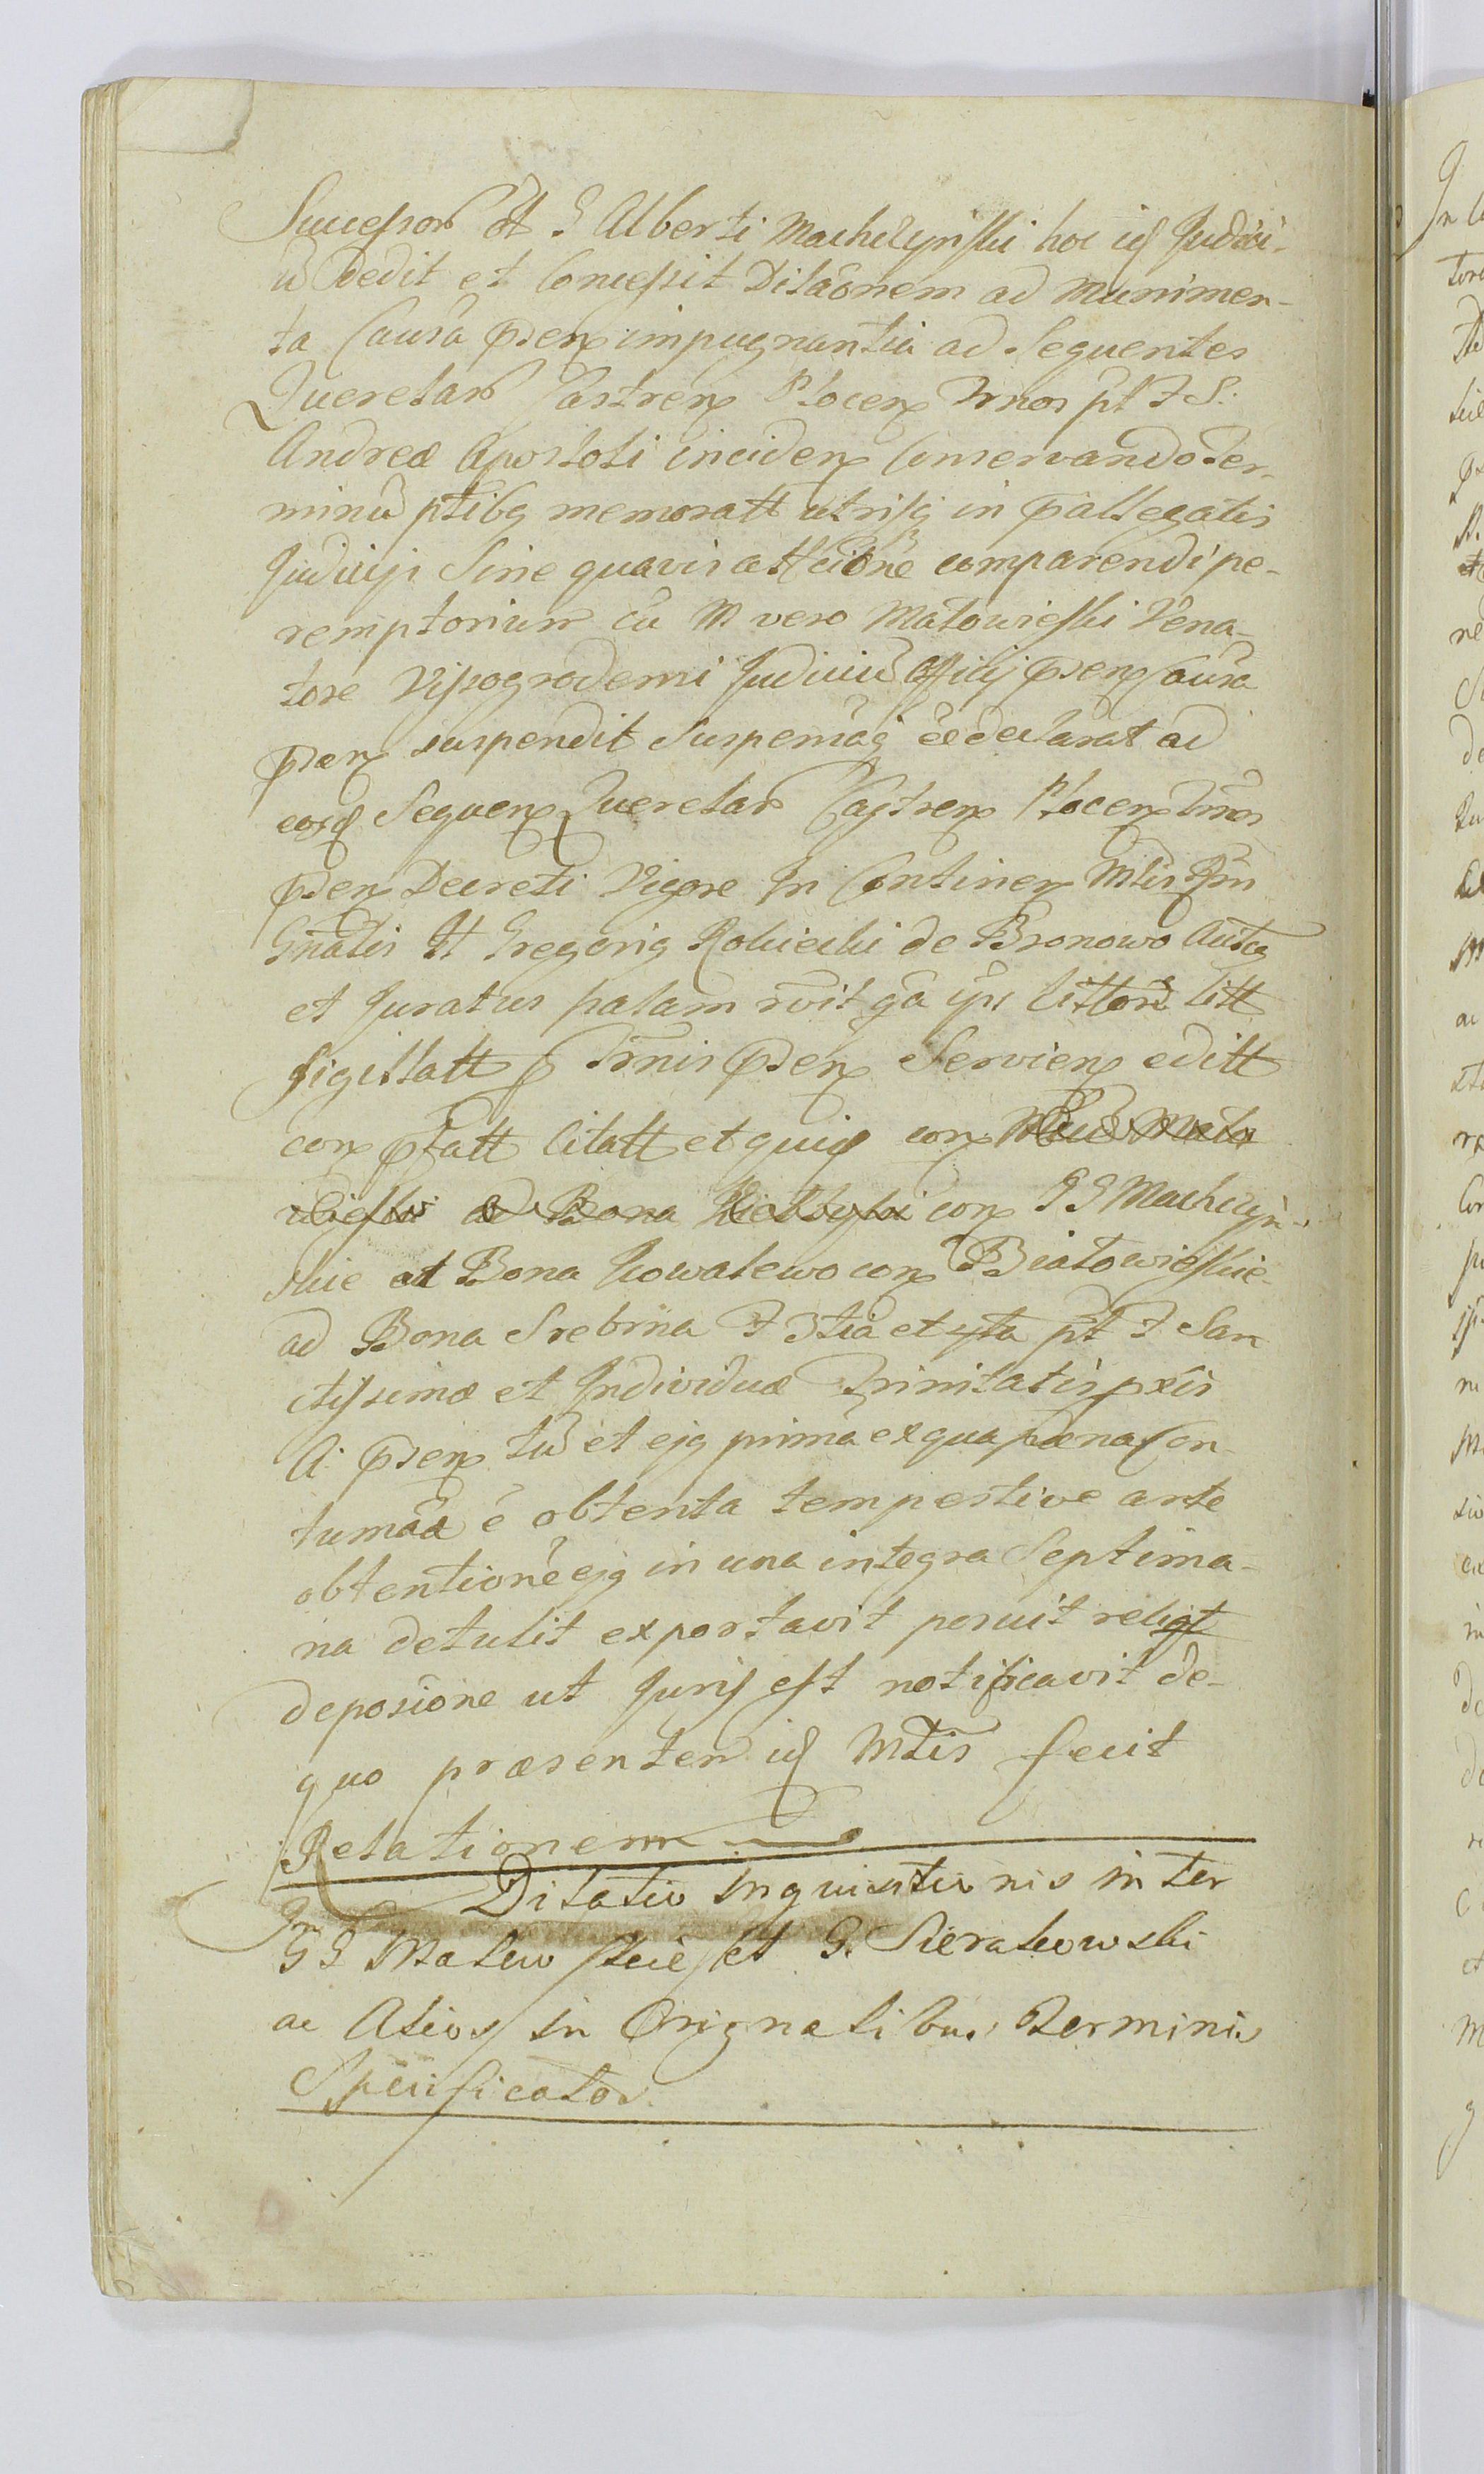 Successor olt G Alberti Machczynski hoc id Judici-
ū Dedit et Concessit Dilāōnem ad munimen-
ta Causa p̄sen impugnantia ad Sequentes
Querelar Castren Plocen Trnos pt F S.
Andreæ Apostoli inciden Conservando Ter-
minū ptibq memoratt utrisq in p̄allegatis
Judicijs Sine quavis attcīōnē comparendi pe-
remptorium cū M vero Małowieski Vena-
tore Vissogrodensi Judiciū Officij p̄sen Causa
p̄sen suspendit suspensāq ēē declarat ad
eosd Sequen Querelar Castren Plocen Trnos
p̄sen Decreti Vigore In Continen Mtis Rm
Gnālis It Gregorig Rokicki de Bronowo Autcq
et Juratus palam rvit qā ips litteris litt
sigillatt p Trnis p̄sen Servien editt
con p̄fatt citatt et quid con
con GG Machczyn-
skie ad Bona Kowalewo con Białowieskie
ad Bona Srebrna F 3tia et 4ta pt F San
ctissimæ et Individuæ Trinitatis pxis
A. p̄sen tū et ejq prima ex qua pæna Con-
tumāā ē obtenta tempestive ante
obtentionē ejq in una integra Septima-
na detulit exportavit posuit reliqt
deposiōne ut Juris est notificavit de-
quo præsentem id Mtis fecit
Relationem
Dilatio Inquisitionis inter
GG Malewskie et G. Sierakowski
ac Alios in Orignalibus Terminis
Specificatos.